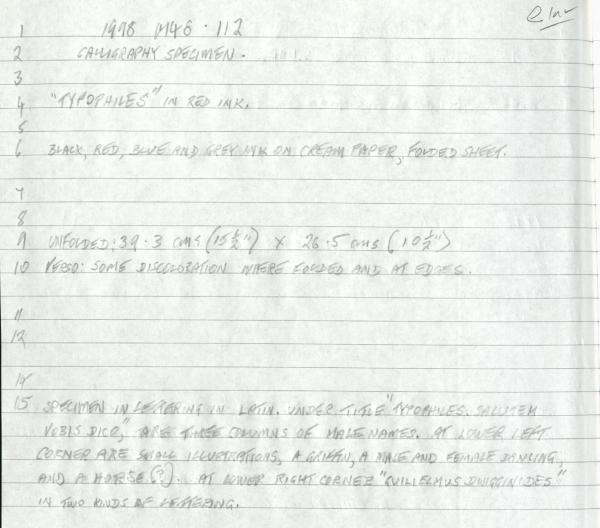 1 1978 M46.112
2 CALLIGRAPHY SPECIMEN.
3
4 "TYPOPHILES" IN RED INK.
5
6 BLACK, RED, BLUE AND GREY INK ON CREAM PAPER, FOLDED SHEET.
7
8
9 UNFOLDED: 39.3 cms (15 ½") x 26.5 cms (10 ½")
10 VERSO: SOME DISCOLORATION WHERE FOLDED AND AT EDGES.
11
12
14
15 SPECIMEN IN LETTERING IN LATIN. UNDER TITLE "TYPOPHILES. SALUTEM
VOBIS DICO," ARE THREE COLUMNS OF MALE NAMES. AT LOWER LEFT
CORNER ARE SMALL ILLUSTRATIONS, A GRIFFIN, A MALE AND FEMALE DANCING,
AND A HORSE (?). AT LOWER RIGHT CORNER "GUILIELMUS DWIGGINIDES"
IN TWO KINDS OF LETTERING.